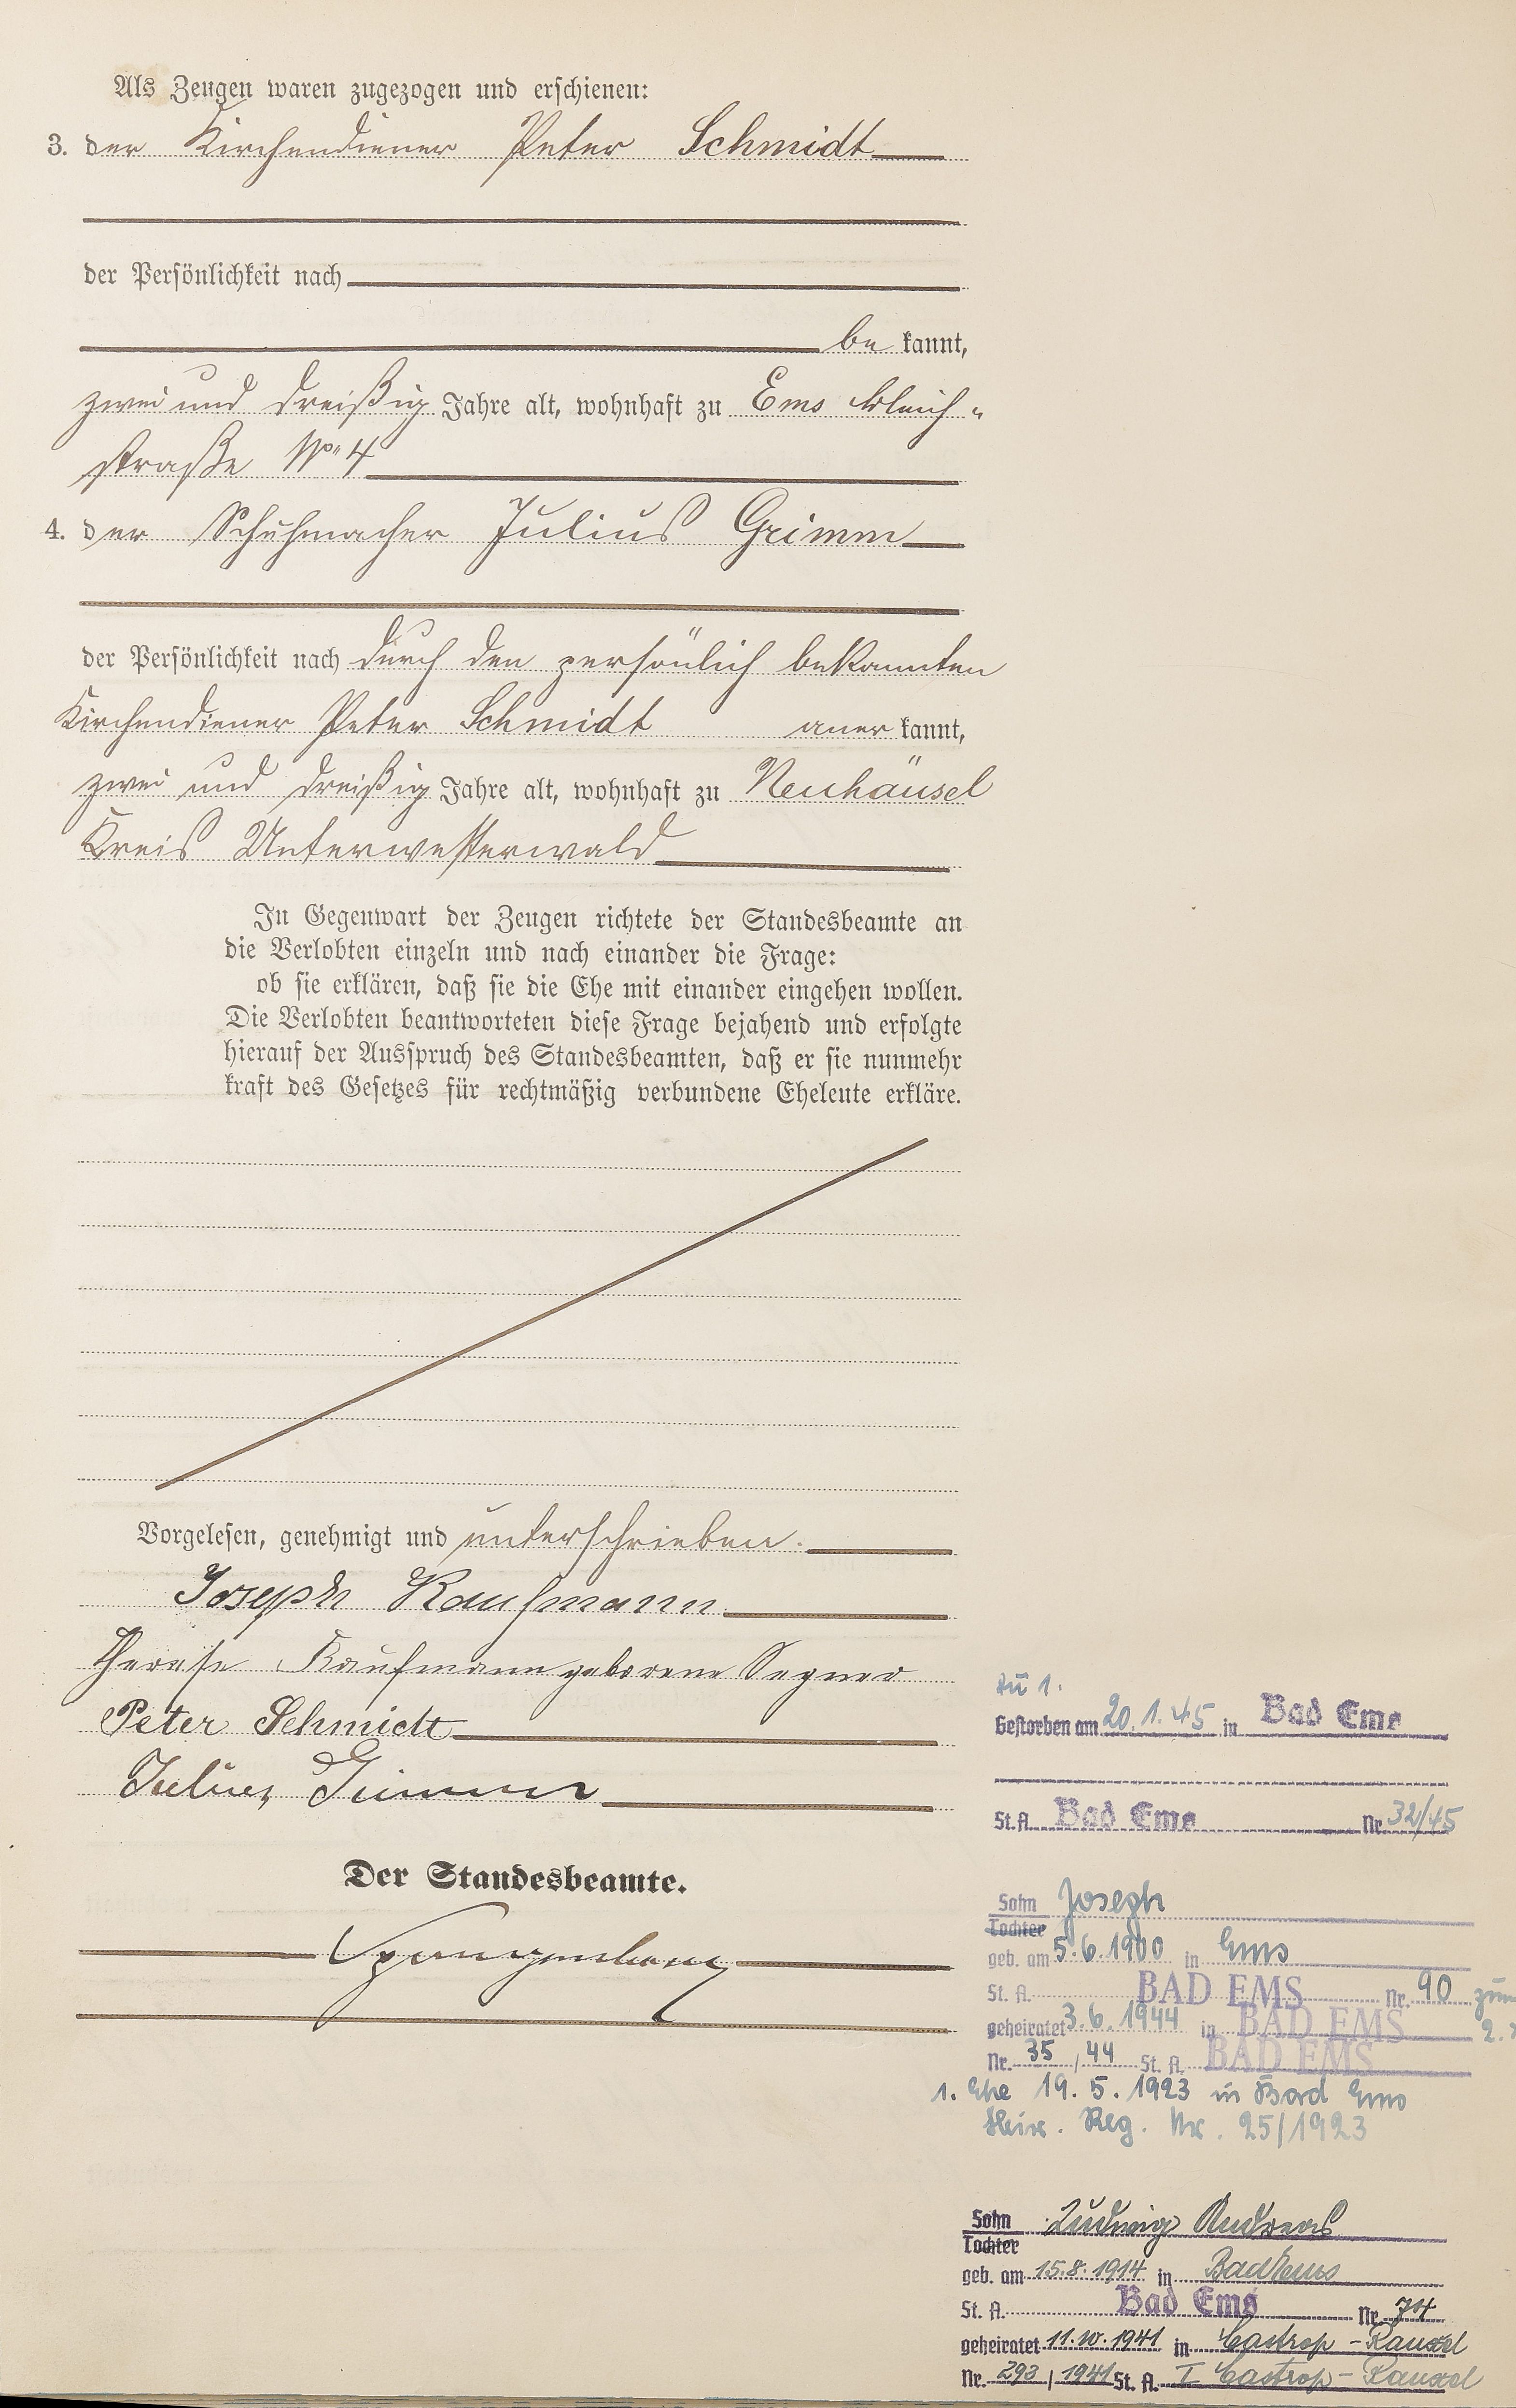 Als Zeugen waren zugezogen und erschienen:
3. der Kirchendiener Peter Schmidt
der Persönlichkeit nach
be kannt,
zwei und dreißig Jahre alt, wohnhaft zu Ems Bleich-
straße No 4
4. der Schuhmacher Julius Grimm
der Persönlichkeit nach durch den persönlich bekannten
Kirchendiener Peter Schmidt aner kannt,
zwei und dreißig Jahre alt, wohnhaft zu Neuhäusel
Kreis Unterwesterwald
In Gegenwart der Zeugen richtete der Standesbeamte an
die Verlobten einzeln und nach einander die Frage:
ob sie erklären, daß sie die Ehe mit einander eingehen wollen.
Die Verlobten beantworteten diese Frage bejahend und erfolgte
hierauf der Ausspruch des Standesbeamten, daß er sie nunmehr
kraft des Gesetzes für rechtmäßig verbundene Eheleute erkläre.
Vorgelesen, genehmigt und unterschrieben.
Joseph Kaufmann
Therese Kaufmann geborene
Peter Schmidt
Julius Grimm
Der Standesbeamte.
Spangenberg
zu 1.
Gestorben am 20.1.45 in Bad Ems
St.A. Bad Ems Nr. 32/45
Sohn Joseph
Tochter
geb. am 5.6.1900 in Ems
St. A. BAD EMS Nr. 90 zum
geheiratet 3.6.1944 in BAD EMS 2.
Nr. 35 / 44 St. A. BAD EMS
1. Ehe 19.5.1923 in Bad Ems
Heir. Reg. Nr. 25/1923
Sohn Ludwig Andreas
Tochter
geb. am 15.8.1914 in Bad Ems
St. A. Bad Ems Nr. 74
geheiratet 11.10.1941 in Castrop-Rauxel
Nr. 293 / 1941 St. A. I Castrop-Rauxel